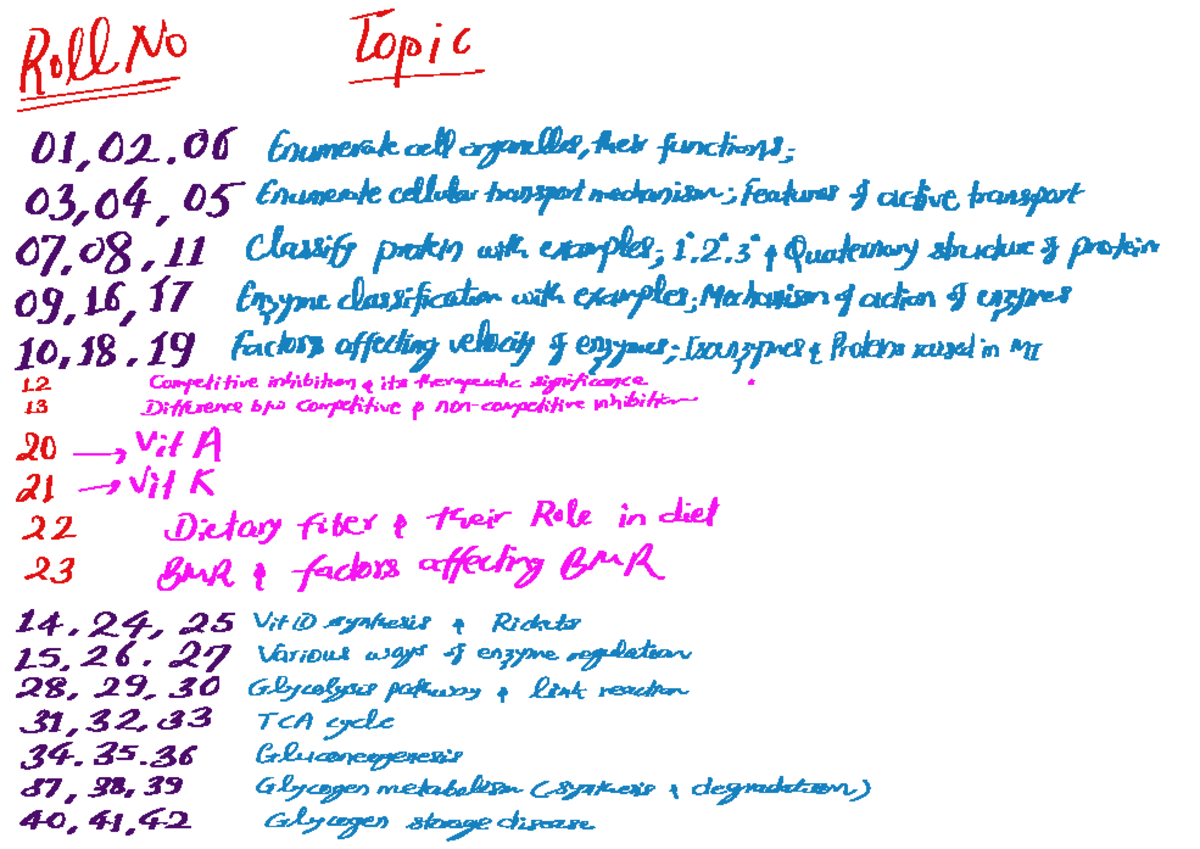 Roll No Topic
01, 02. 06 Enumerate cell organelles, their functions;
03, 04, 05 Enumerate cellular transport mechanism; Features of active transport
07. 08, 11 Classify protein with examples; 1°. 2°. 3° & Quaternary structure of protein
09, 16, 17 Enzyme classification with examples; Mechanism of action of enzymes
10, 18. 19 Factors affecting velocity of enzymes; Isoenzymes & Proteins raised in MI
12 Competitive inhibition & its therapeutic significance
13 Difference b/w competitive & non-competitive inhibition
20 → Vit A
21 → Vit K
22 Dietary fiber & their Role in diet
23 BMR & factors affecting BMR
14. 24, 25 Vit D synthesis & Rickets
15, 26. 27 Various ways of enzyme regulation
28, 29, 30 Glycolysis pathway & link reaction
31, 32, 33 TCA cycle
34. 35. 36 Gluconeogenesis
37, 38, 39 Glycogen metabolism (synthesis & degradation)
40, 41, 42 Glycogen storage disease